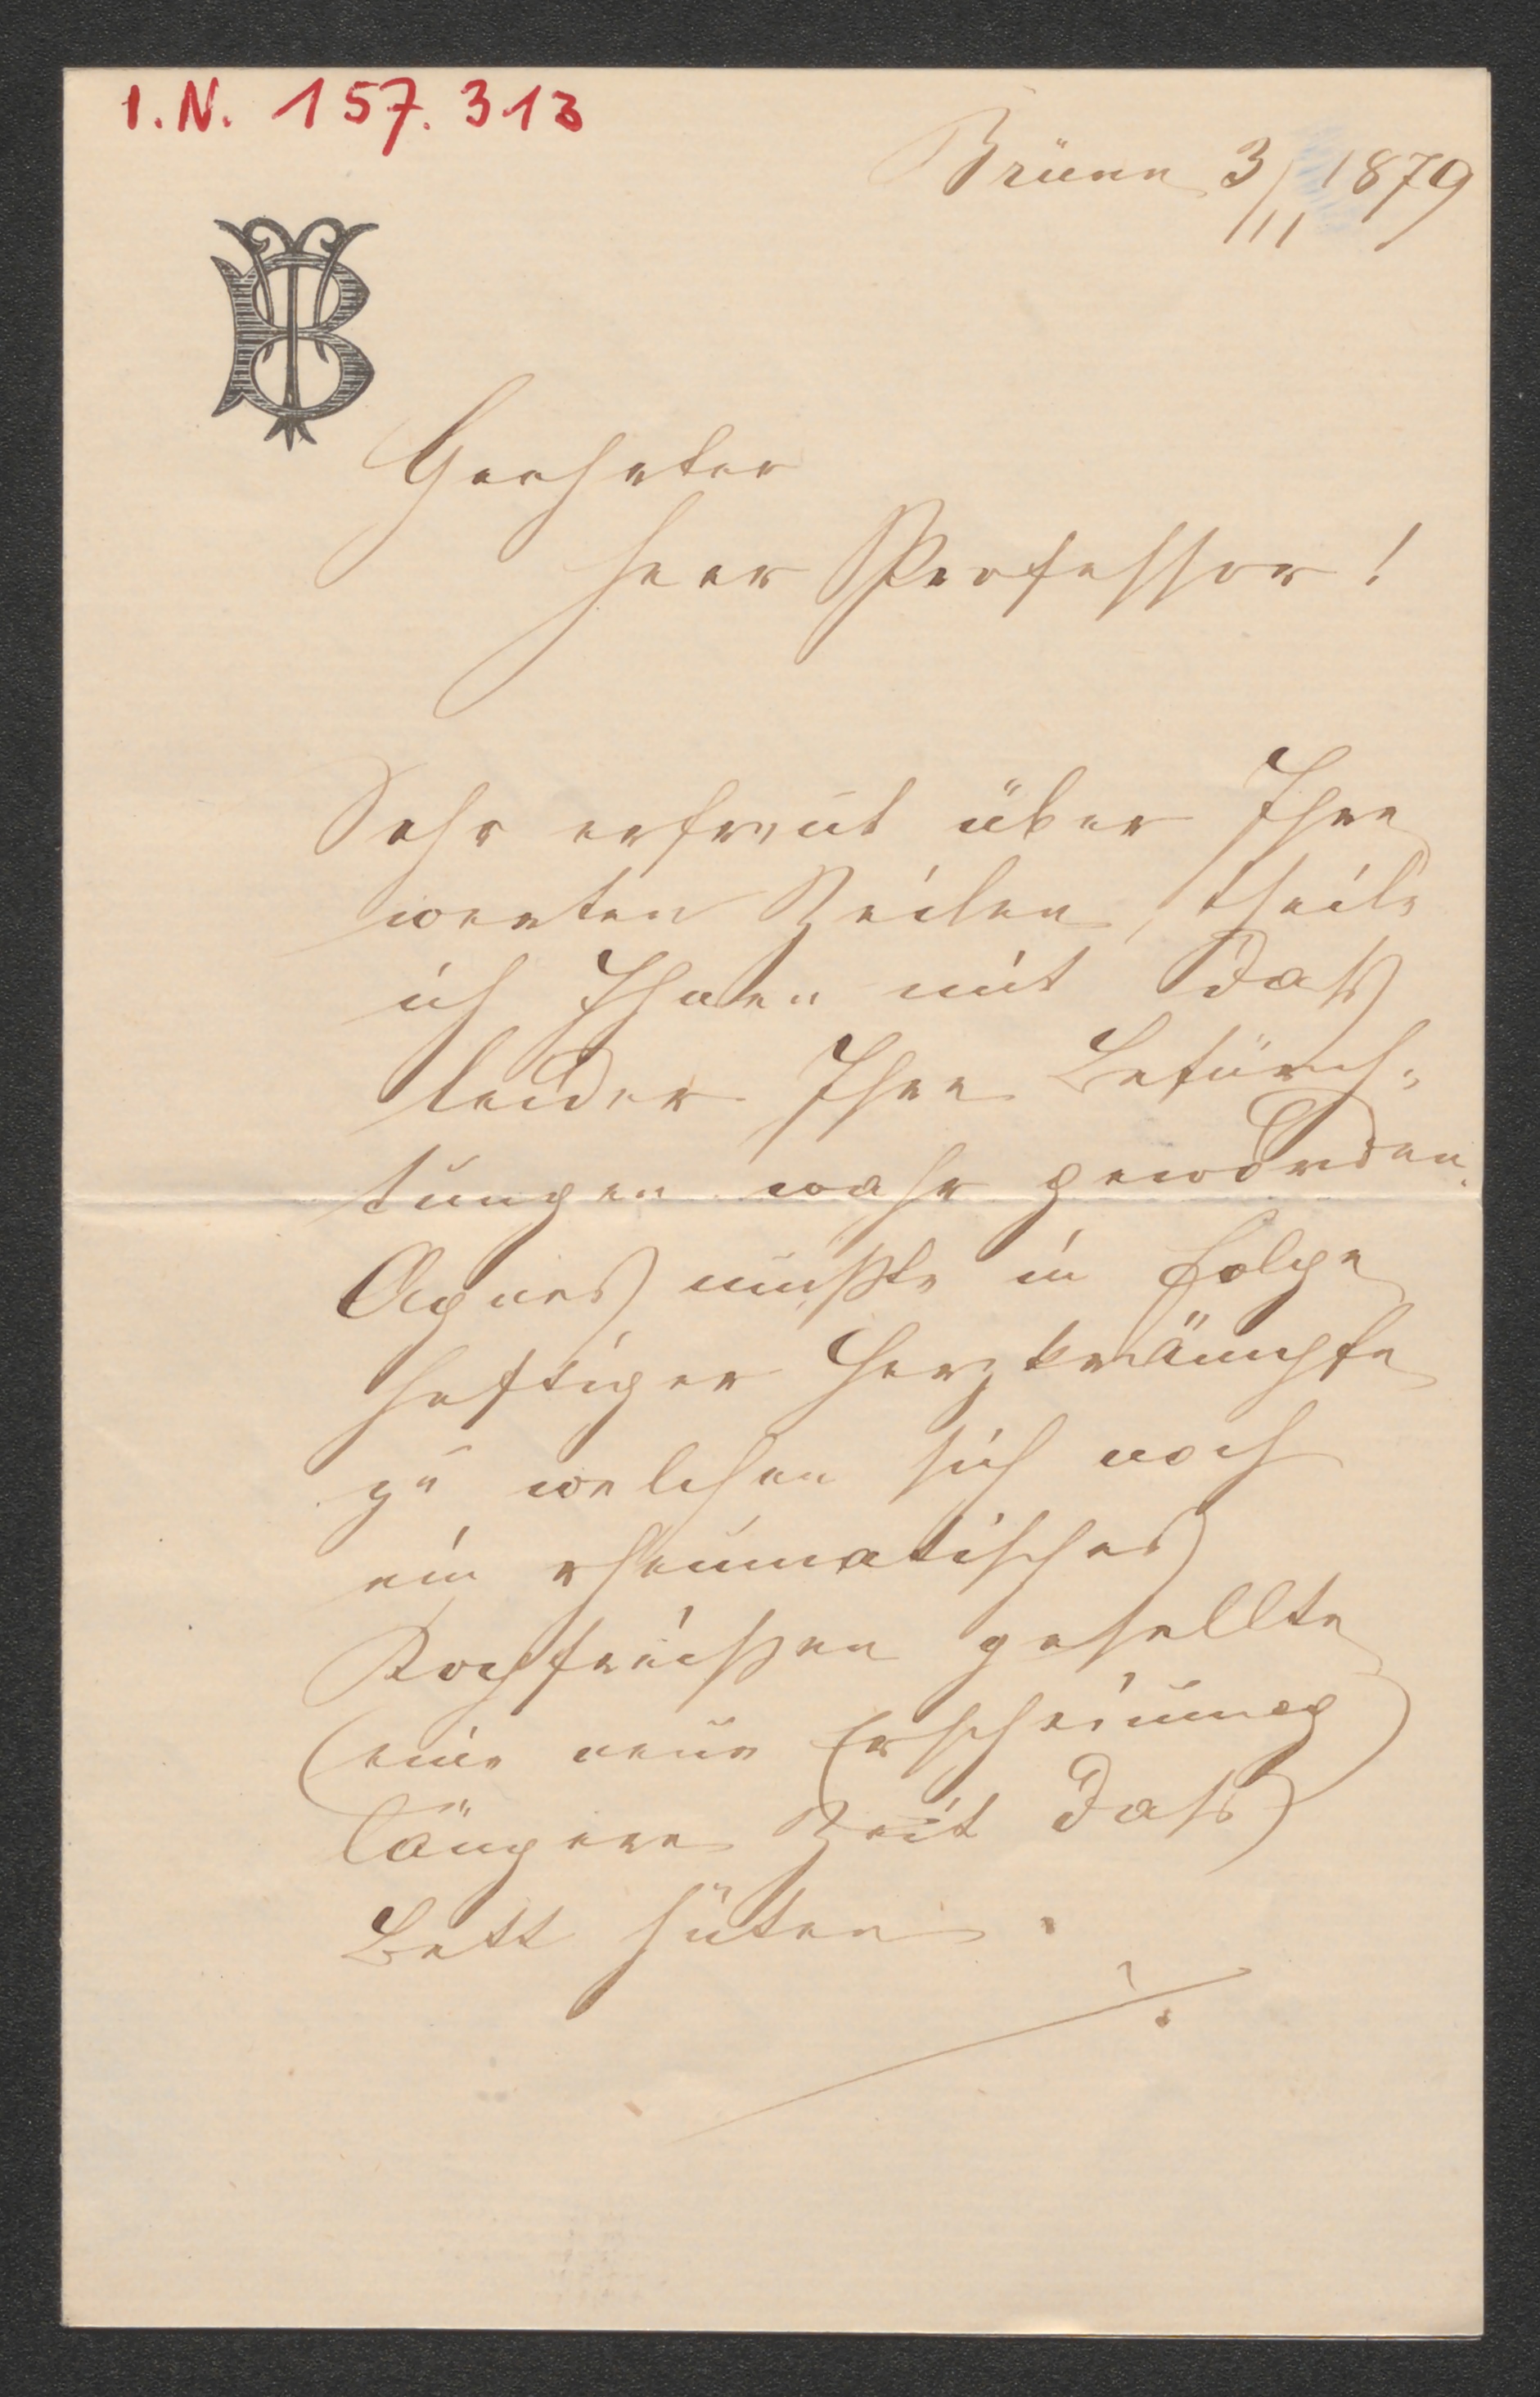 I.N. 157.313
Brünn 3/III 1879
Geehrter
Herr Professor!
Sehr erfreut über Ihre
werten Zeilen, theile
ich Ihnen mit dass
leider Ihre Befürch-
tungen wahr geworden.
Agnes mußte in Folge
heftiger Herzkrämpfe
zu welchen sich noch
ein rheumatisches
Kopfreißen gesellte
(eine neue Erscheinung)
längere Zeit dass
Bett hüten.
./.